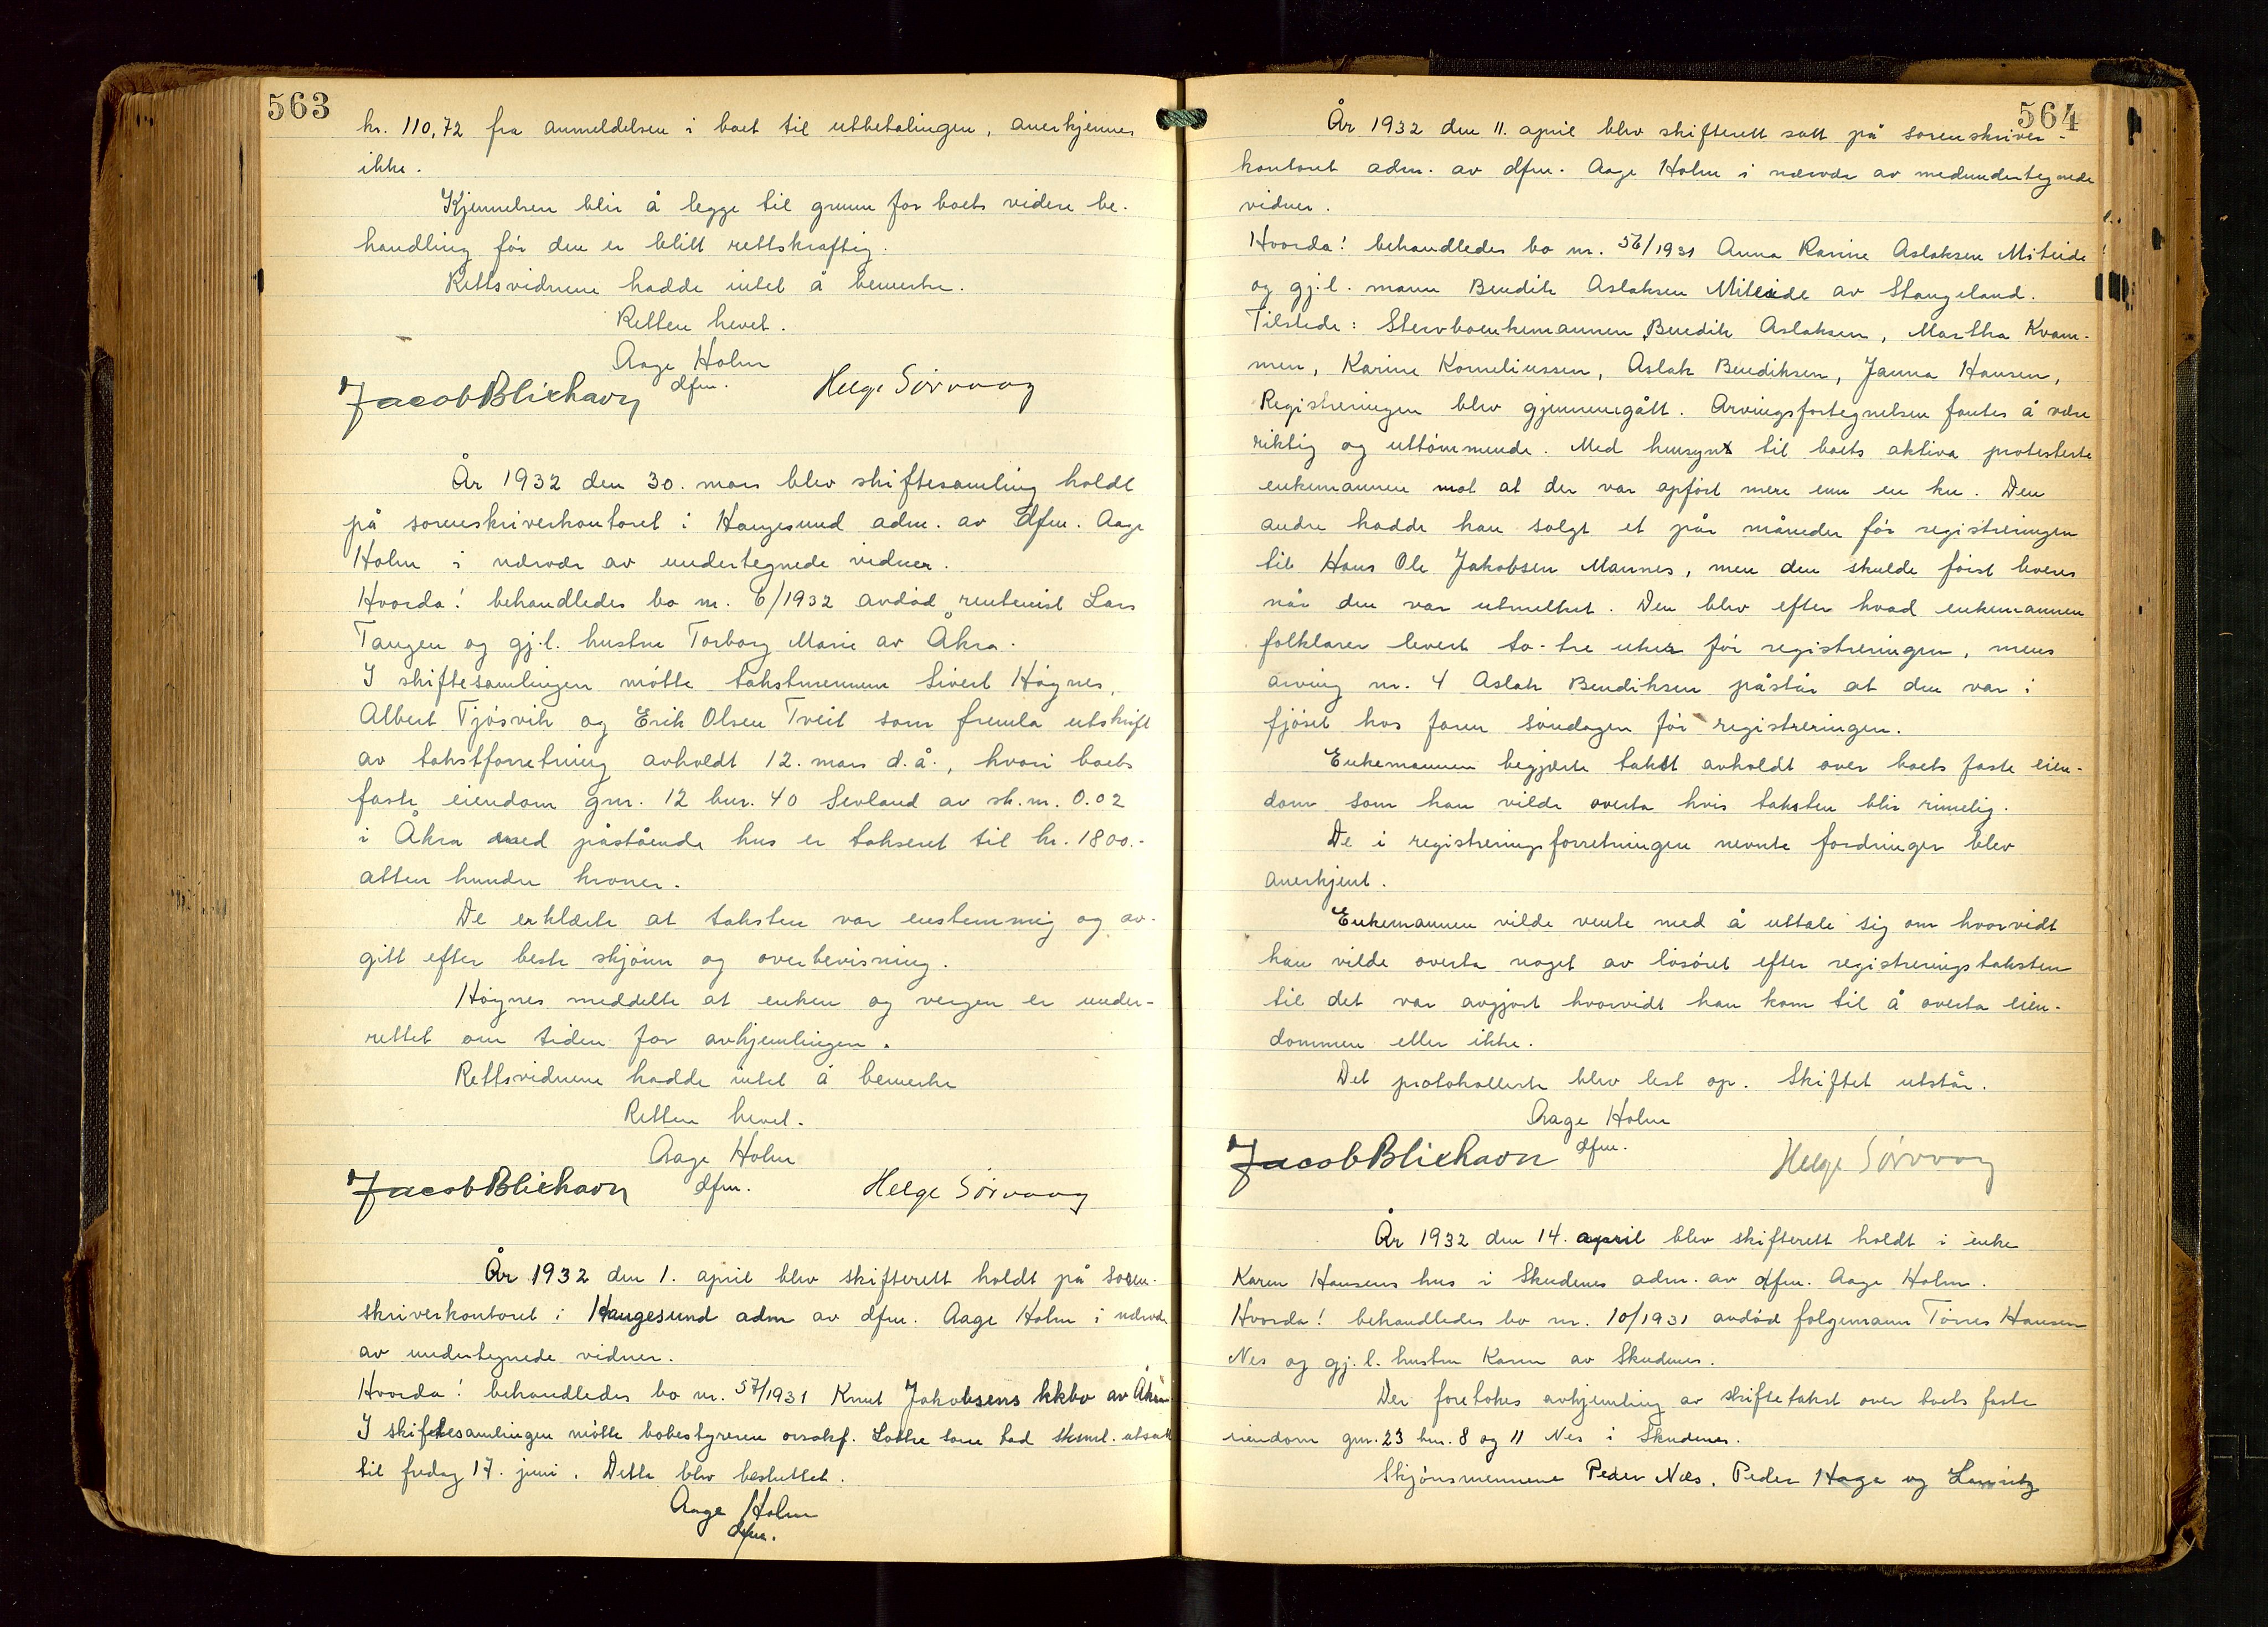 563
kr. 110,72 fra anmeldelsen i boet til utbetalingen, anerkjennes
ikke.
Kjennelsen blir å legge til grunn for boets videre be-
handling før den er blitt rettskraftig.
Rettsvidnene hadde intet å bemerke.
Retten hevet.
Aage Holm
dfm.
Jacob Blikhavn Helge Sørvaag
År 1932 den 30. mars blev skiftesamling holdt
på sorenskriverkontoret i Haugesund adm. av dfm. Aage
Holm i nærvær av undertegnede vidner.
Hvorda! behandledes bo nr. 6/1932 avdød rentenist Lars
Tangen og gj.l. hustru Torborg Marie av Åkra.
I skiftesamlingen møtte takstmennene Sivert Høgnes,
Albert Tjøsvik og Erik Olsen Tveit som fremla utskrift
av takstforretning avholdt 12. mars d.å., hvori boets
faste eiendom gnr. 12 bnr. 40 Sevland av sk.m. 0.02
i Åkra med påstående hus er taksert til kr. 1800.-
atten hundre kroner.
De erklærte at taksten var enstemmig og av-
gitt efter beste skjønn og overbevisning.
Høgnes meddelte at enken og vergen er under-
rettet om tiden for avhjemlingen.
Rettsvidnene hadde intet å bemerke
Retten hevet.
Aage Holm
dfm.
Jacob Blikhavn Helge Sørvaag
År 1932 den 1. april blev skifterett holdt på soren-
skriverkontoret i Haugesund adm av dfm. Aage Holm i nærvær
av undertegnede vidner.
Hvorda! behandledes bo nr. 57/1931 Knut Jakobsens kkbo av Åkra
I skiftesamlingen møtte bobestyreren orsakf. Lothe som bad sksml. utsatt
til fredag 17. juni. Dette blev besluttet.
Aage Holm
dfm.
564
År 1932 den 11. april blev skifterett satt på sorenskriver-
kontoret adm. av dfm. Aage Holm i nærvær av medundertegnede
vidner.
Hvorda! behandledes bo nr. 56/1931 Anna Karine Aslaksen Miteide
og gj.l. mann Bendik Aslaksen Miteide av Stangeland.
Tilstede: Stervboenkemannen Bendik Aslaksen, Martha Kvam-
men, Karine Korneliussen, Aslak Bendiksen, Janna Hansen,
Registreringen blev gjennemgått. Arvingsfortegnelsen fantes å være
riktig og uttømmende. Med hensyn til boets aktiva protesterte
enkemannen mot at der var opført mere enn en ku. Den
andre hadde han solgt et par måneder før registreringen
til Hans Ole Jakobsen Mannes, men den skulde først leveres
når den var utmelket. Den blev efter hvad enkemannen
folklarer levert to-tre uker før registreringen, mens
arving nr. 4 Aslak Bendiksen påstår at den var i
fjøset hos faren søndagen før registreringen.
Enkemannen begjærte takst avholdt over boets faste eien-
dom som han vilde overta hvis taksten blir rimelig.
De i registreringsforretningen nevnte fordringer blev
anerkjent.
Enkemannen vilde vente med å uttale sig om hvorvidt
han vilde overta noget av løsøret efter registreringstaksten
til det var avgjort hvorvidt han kom til å overta eien-
dommen eller ikke.
Det protokollerte blev lest op. Skiftet utstår.
Aage Holm
dfm.
Jacob Blikhavn Helge Sørvaag
År 1932 den 14. april blev skifterett holdt i enke
Karen Hansens hus i Skudenes adm. av dfm. Aage Holm.
Hvorda! behandledes bo nr. 10/1931 avdød følgemann Tørres Hansen
Nes og gj.l. hustru Karen av Skudenes.
Der foretokes avhjemling av skiftetakst over boets faste
eiendom gnr. 23 bnr. 8 og 11 Nes i Skudenes.
Skjønsmennene Peder Næs, Peder Haga og Lauritz